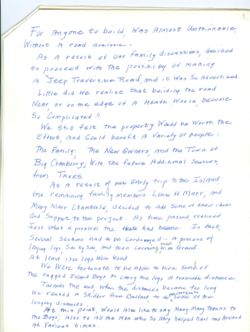 For Anyone to build, was Almost Unthinkable
Without A road available.
As a result of our family discussions, decided
to proceed with the possibility of making
A "Jeep Traversion Road", and it was so advertised.
Little did we realize that building the road
Near or on the edge of A Heath would become
So Complicated!!
We still felt the property would be worth the
Effort, and could benefit A variety of people.
The Family: The New Owners, and the Town of
Big Cranberry, with the future Additional sources
from Taxes
As a result of our Early trip to the Island
the remaining family members and
Mary decided to Add some of their own
and support to the project. As time passed,
Just what a process this had become. In fact,
Several sections had to be A process of
laying logs, side by side, and then covering with Gravel.
At least 1200 logs were used
We were fortunate to be able to hire some of
the rugged Island Boys to carry the logs A reasonable distance
Towards the end, when the distance became too long
We rented A Skidder from to some of the
longer distances
At this point would also like to say Many Many Thanks to
the Boys; Also to all the men who so ably helped Karl and
At Various times